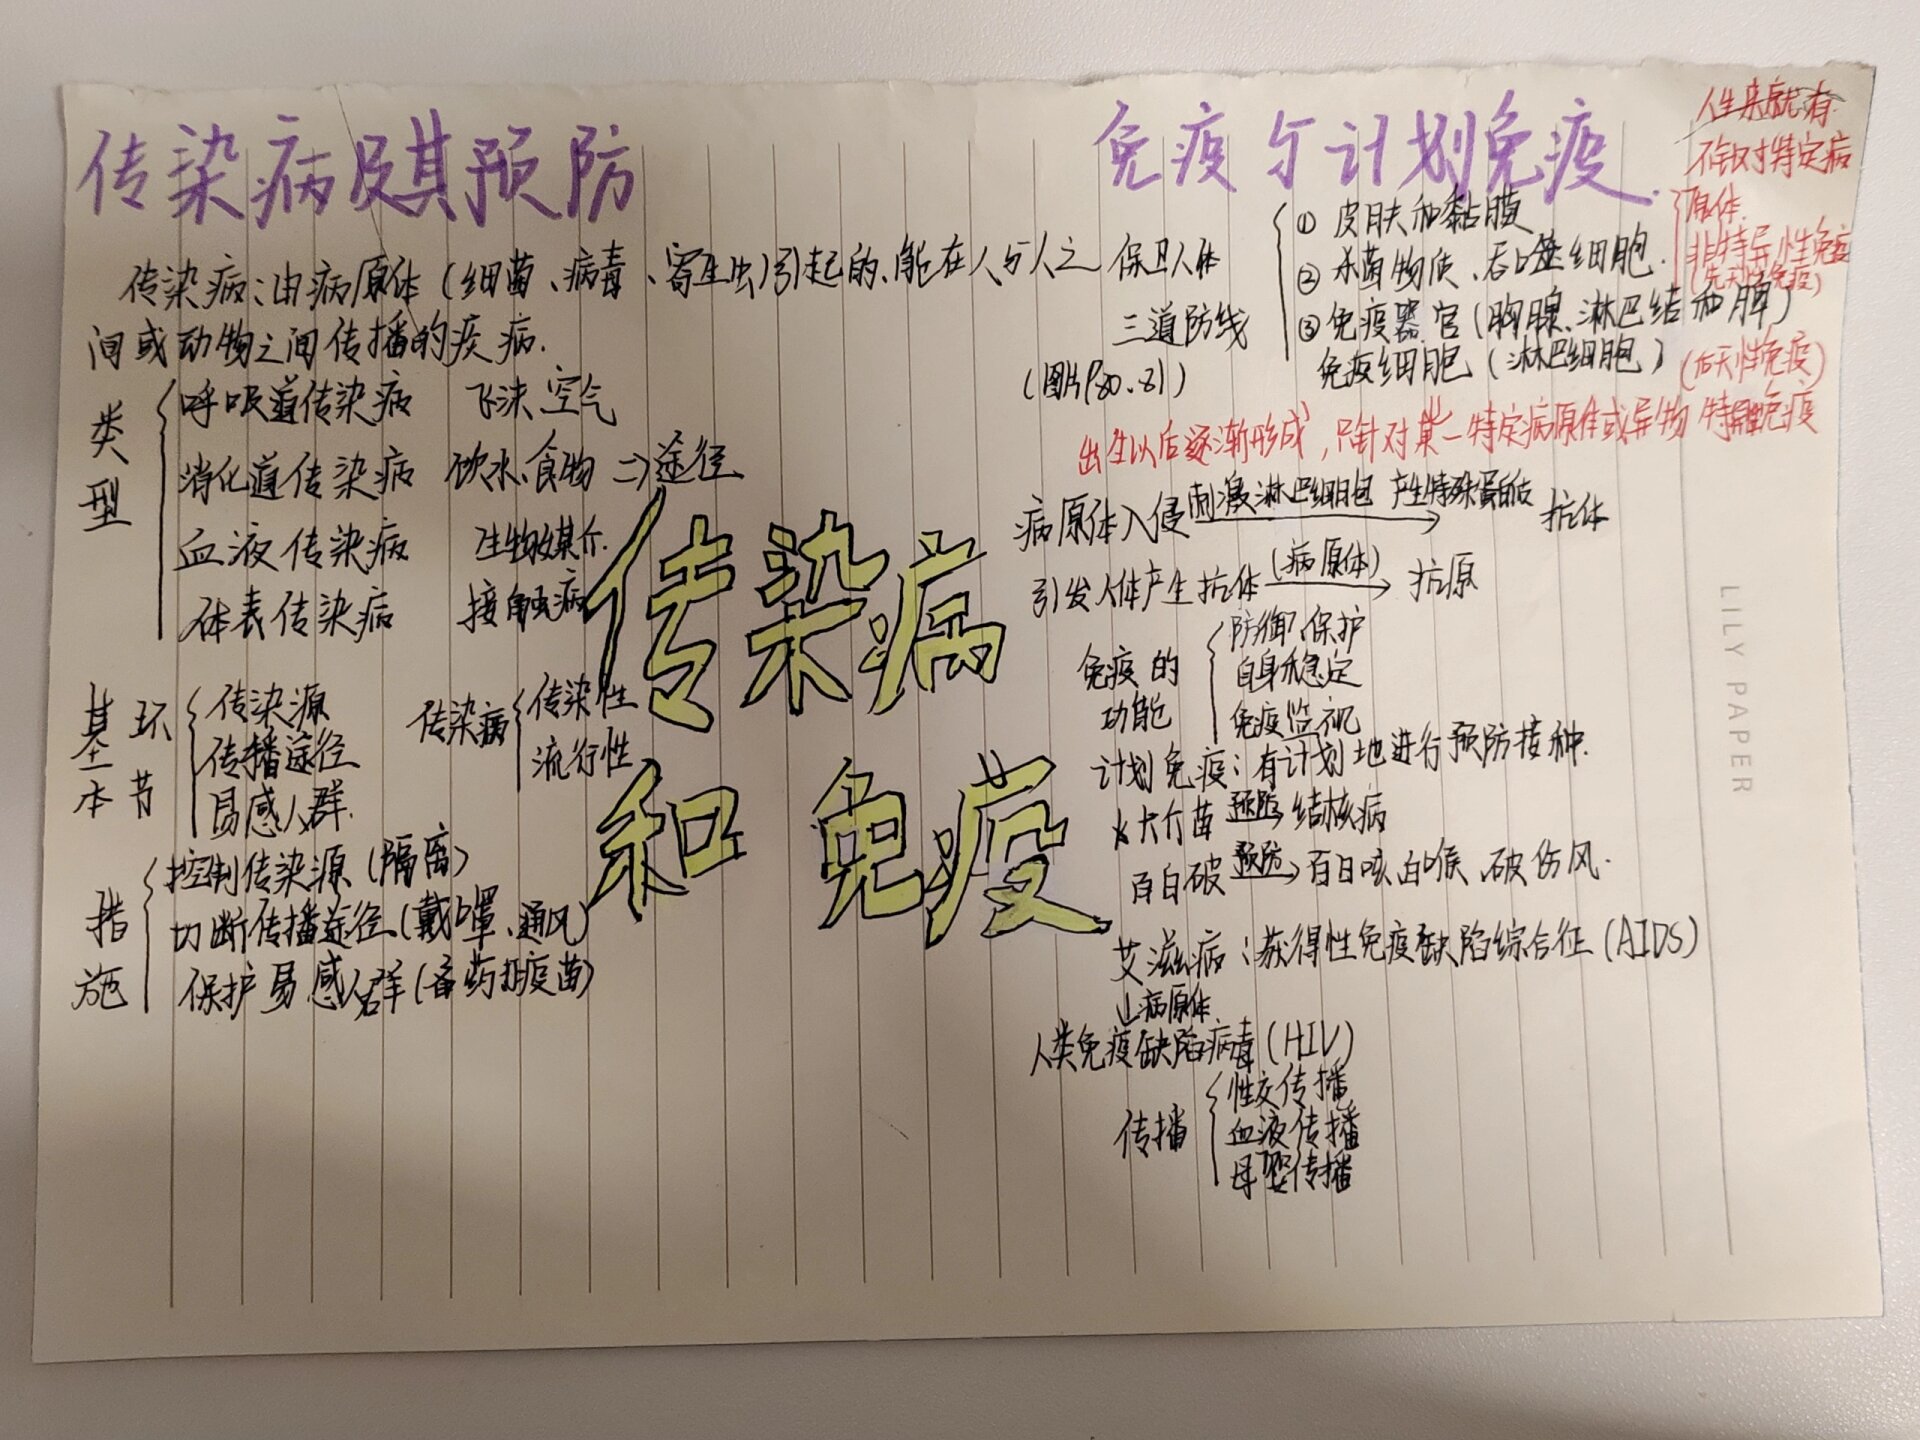 传染病及其预防
传染病：由病原体（细菌、病毒、寄生虫）引起的、能在人与人之
间或动物之间传播的疾病.
类型
呼吸道传染病 飞沫、空气
消化道传染病 饮水、食物 => 途径
血液传染病 生物媒介.
体表传染病 接触病
基本环节
传染源
传播途径
易感人群.
传染病
传染性
流行性
措施
控制传染源（隔离）
切断传播途径（戴口罩、通风）
保护易感人群（备药打疫苗）
传染病
和免疫
免疫与计划免疫.
保卫人体
三道防线
(图片P80、81)
① 皮肤和黏膜
② 杀菌物质、吞噬细胞.
③ 免疫器官（胸腺、淋巴结和脾）
免疫细胞（淋巴细胞）
人生来就有
不针对特定病
原体.
非特异性免疫
(先天性免疫)
(后天性免疫)
出生以后逐渐形成，只针对某一特定病原体或异物 特异性免疫
病原体入侵 刺激淋巴细胞 产生特殊蛋白质 抗体
引发人体产生抗体 (病原体) 抗原
免疫的
功能
防御、保护
自身稳定
免疫监视
计划免疫：有计划地进行预防接种.
卡介苗 预防 结核病
百白破 预防 百日咳、白喉、破伤风.
艾滋病：获得性免疫缺陷综合征（AIDS）
病原体.
人类免疫缺陷病毒（HIV）
传播
性交传播
血液传播
母婴传播
LILY PAPER